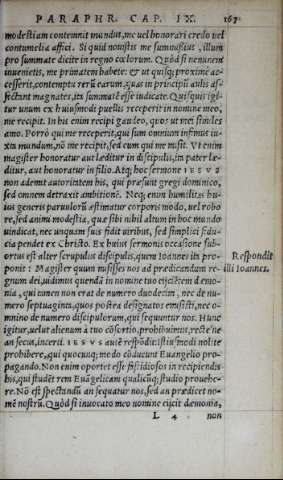 PARAPHR. CAP. IX. 167
modestiam contemnit mundus, me uel honorari credo uel
contumelia affici. Si quid nouistis me summussius, illum
pro summate dicite in regno cœlorum. Quòd si nemi
inuenietis, me primatem habete: & ut quisq; proximè ac-
cesserit, contemptu rerũ earum, quas in principũ aulis af-
fectant magnates, ita summatẽ esse iudicate. Quisquis igi-
tur unum ex huiusmodi puellis receperit in nomine meo,
me recipit. In his enim recipi gaudeo, quos ut mei similes
amo. Porrò qui me receperit, qui sum omnium infimus iu-
xta mundum, nõ me recipit, sed eum qui me misit. Vt enim
magister honoratur aut læditur in discipulis, ita pater læ-
ditur, aut honoratur in filio. Atq; hoc sermone IESVS
non ademit autoritatem his, qui præsunt gregi dominico,
sed omnem detraxit ambitionẽ. Neq; enim humilitas hu-
ius generis paruulorũ æstimatur corporis modo, uel robo
re, sed animi modestia, quæ sibi nihil altum in hoc mundo
uindicat, nec usquam suis fidit uiribus, sed simplici fidu-
cia pendet ex Christo. Ex huius sermonis occasione sub-
ortus est alter scrupulus discipulis, quem Ioannes ita pro-
ponit: Magister quum misisses nos ad prædicandam re-
gnum dei, uidimus quendã in nomine tuo eijciẽtem dæmo-
nia, qui tamen non erat de numero duodecim, nec de nu-
mero septuaginta, quos postea designatos emisisti, nec o-
mnino de numero discipulorum, qui sequuntur nos. Hunc
igitur, uelut alienum à tuo cõsortio, prohibuimus, recte ne
an secus, incerti. IESVS autẽ respõdit: istiusmodi nolite
prohibere, qui quocunq; modo cõducunt Euangelio pro-
pagando. Non enim oportet esse fastidiosos in recipiendis
his, qui studẽt rem Euãgelicam qualicũq; studio prouehe-
re. Nõ est spectandũ an sequatur nos, sed an prædicet no-
mẽ nostrũ. Quòd si inuocato meo nomine eijcit dæmonia,
L 4 non
Respondit
illi Ioannes.